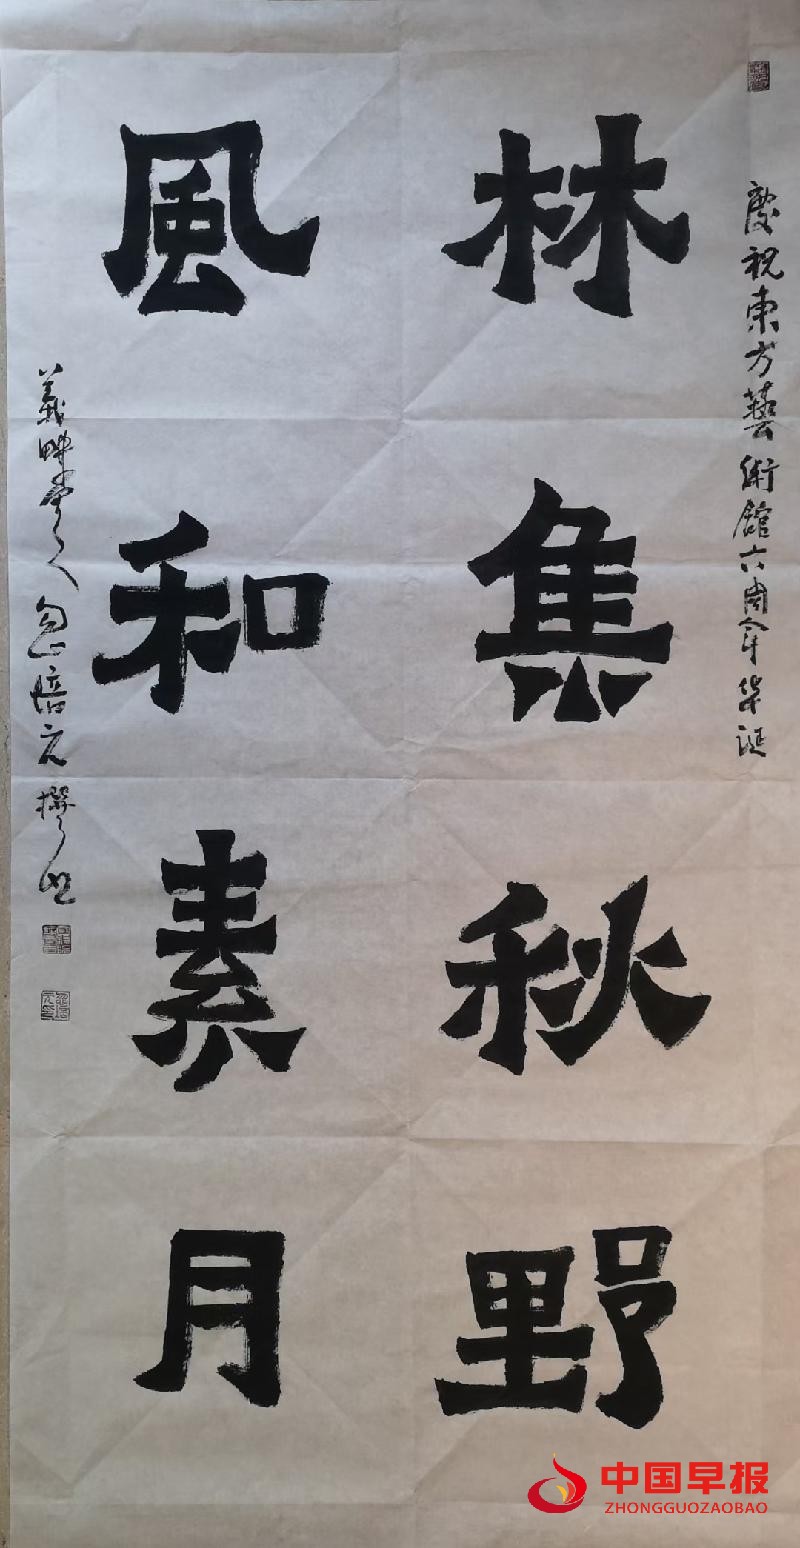 慶祝東方藝術館六周年华诞
林集秋野
風和素月
忽培元撰
中国早报
ZHONGGUOZAOBAO